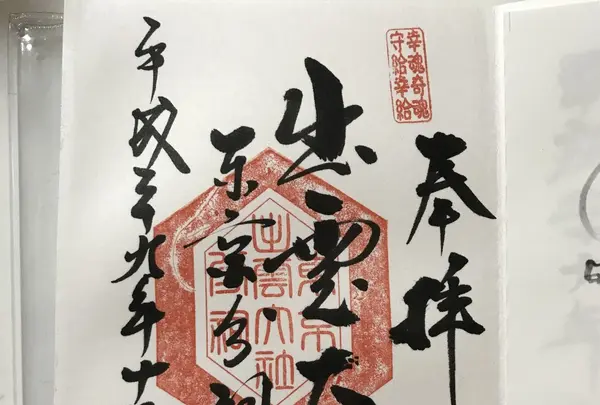 幸魂奇魂
守給幸給
奉拝
出雲大
東京分祠
平成二九年十
出雲大社